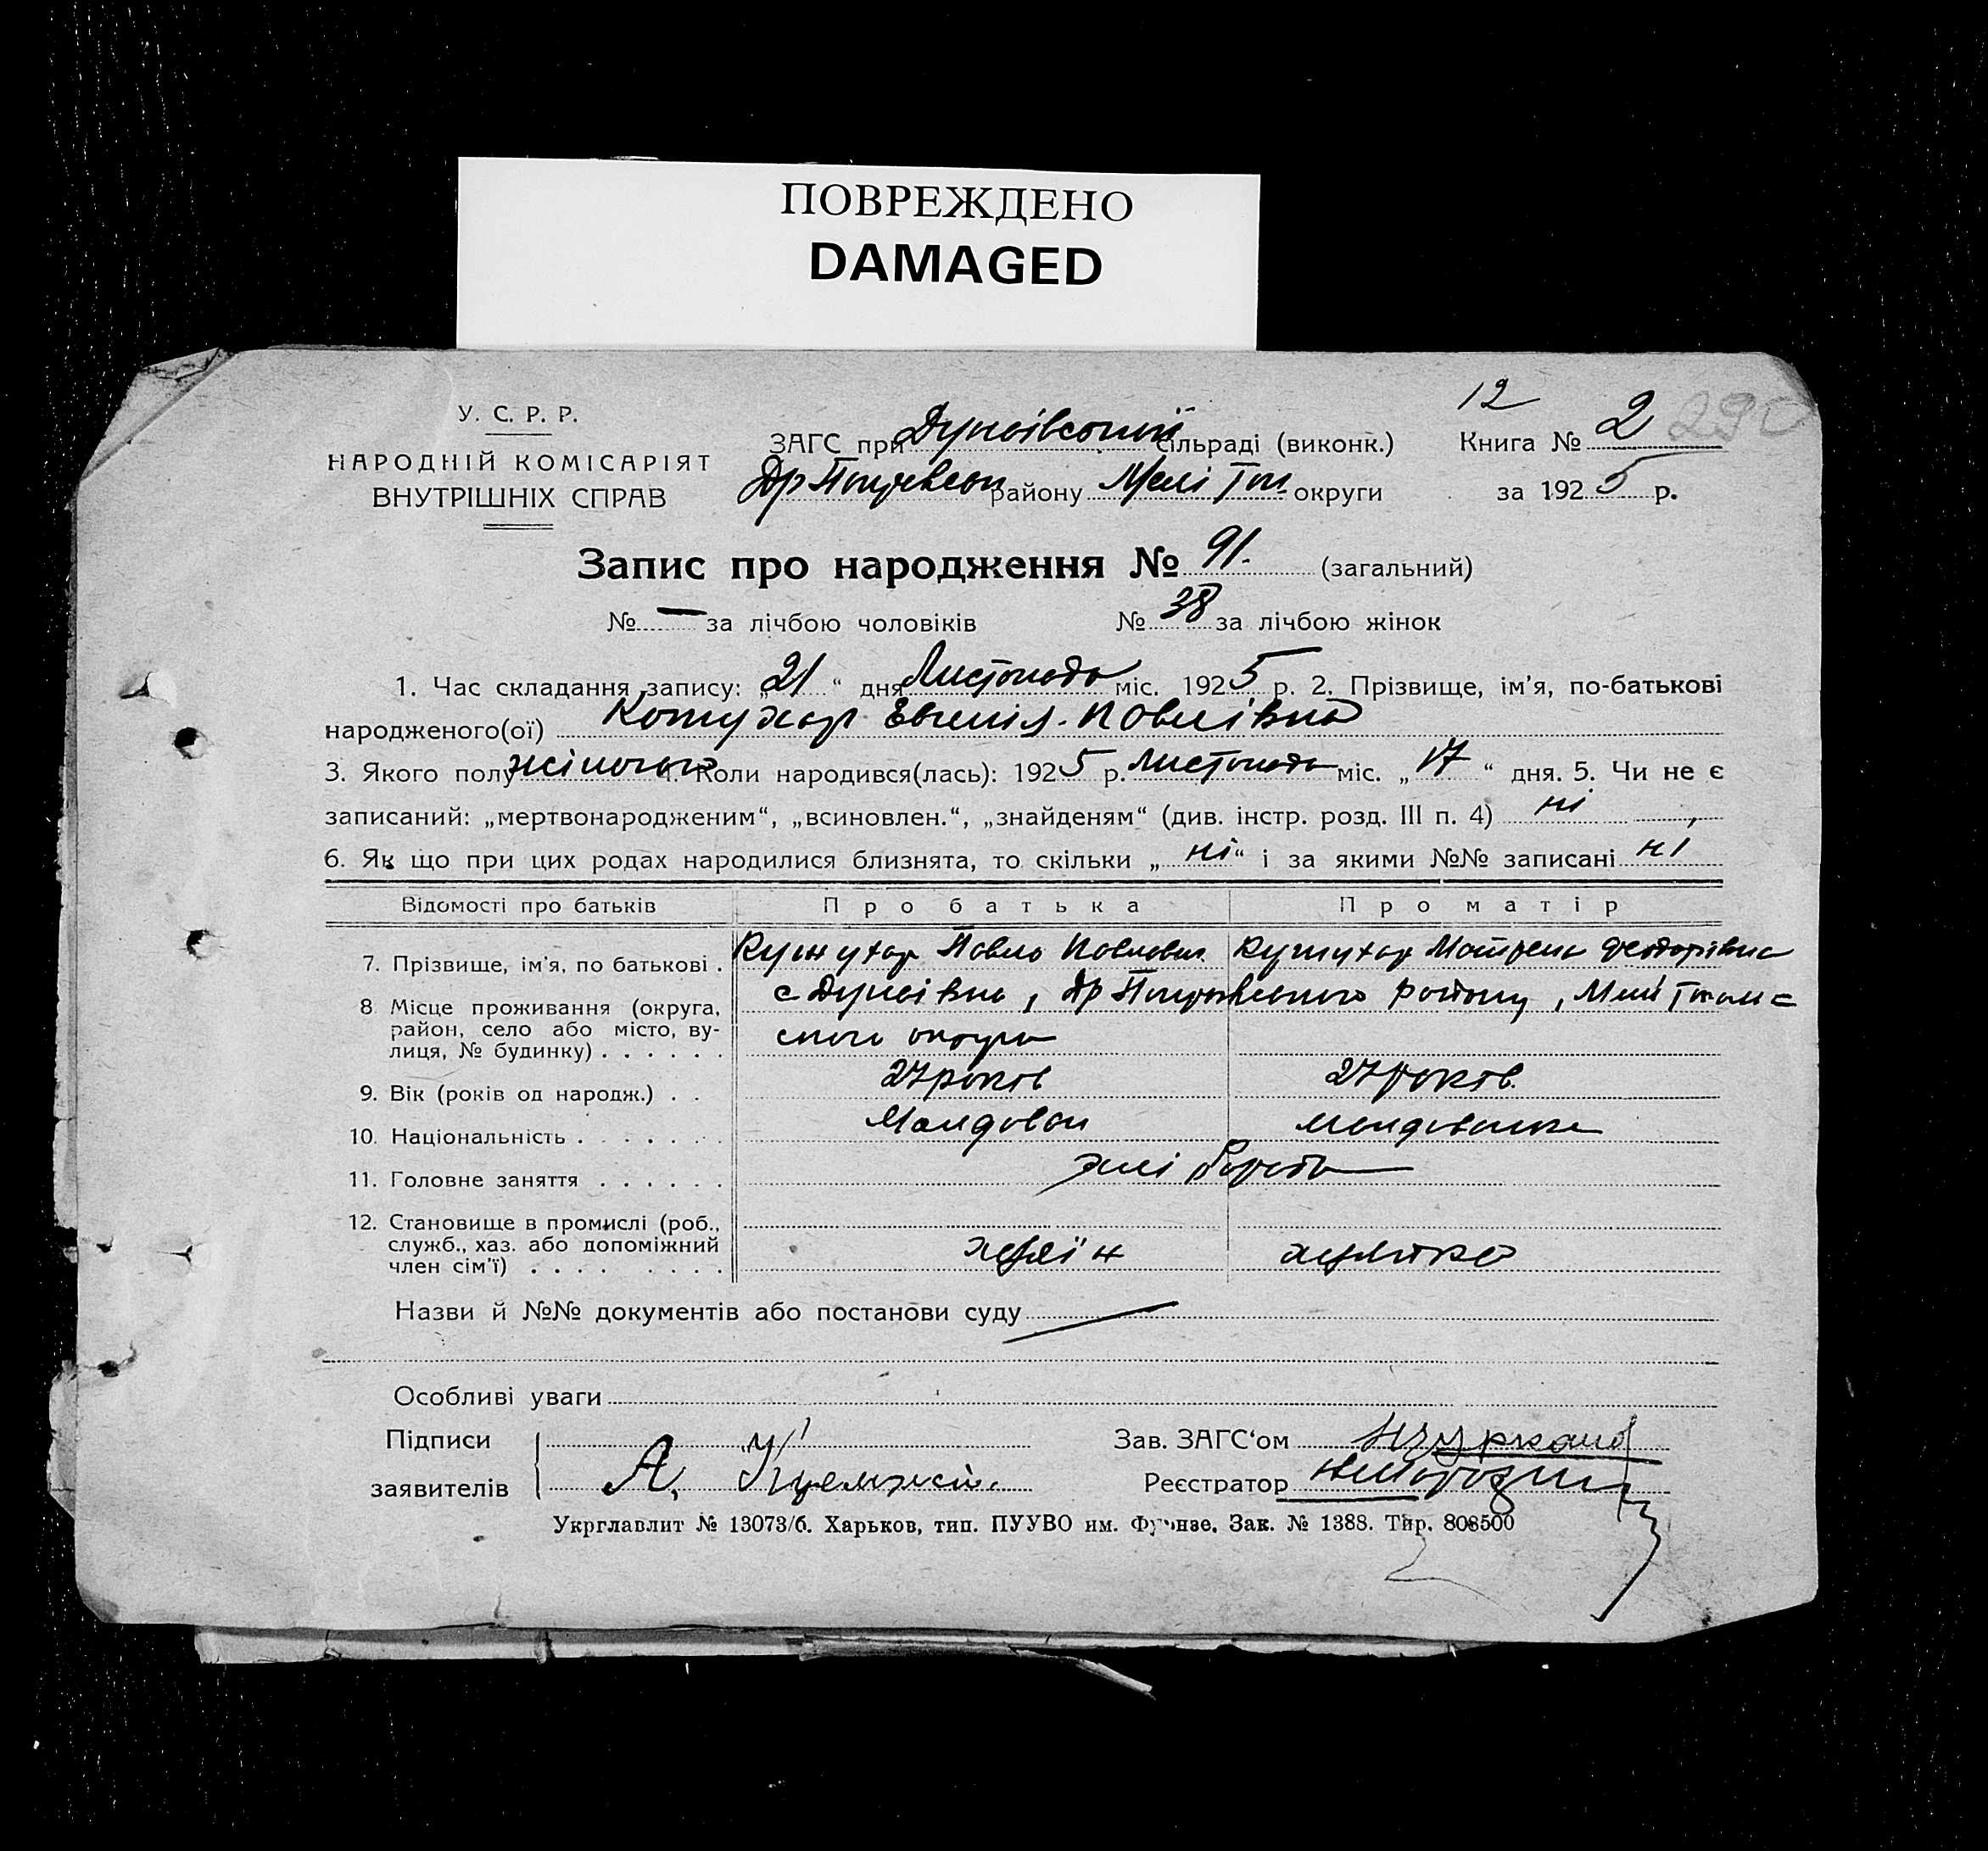 ПОВРЕЖДЕНО
DAMAGED
12
У. С. Р. Р.
НАРОДНІЙ КОМІСАРІЯТ
ВНУТРІШНІХ СПРАВ
ЗАГС при Дунаівській сільраді (виконк.) Книга № 2 290
районy Мелітоп. округи за 1925 р.
Запис про народження № 91. (загальний)
№ — за лічбою чоловіків № 38 за лічбою жінок
1. Час складання запису: „21“ дня Листопада міс. 1925 р. 2. Прізвище, ім’я, по-батькові
народженого(ої) Евгенія Павлівна
3. Якого полу жіночого 4. Коли народився(лась): 1925 р. Листопада міс. „17“ дня. 5. Чи не є
записаний: „мертвонародженим“, „всиновлен.“, „знайденям“ (див. інстр. розд. III п. 4) ні,
6. Як що при цих родах народилися близнята, то скільки „ні“ і за якими №№ записані ні
Відомості про батьків Про батька Про матір
7. Прізвище, ім’я, по батькові . Кужухар Павло Павлович Кужухар Мотрена Феодорівна
8 Місце проживання (округа, с Дунаівка, району, Мелітополь=
район, село або місто, ву-
лиця, № будинку) . . . . . . ськоі округи
9. Вік (років од народж.) . . 27 років 27 років
10. Національність . . . . . . . Молдован молдованка
11. Головне заняття . . . . . . хліборобство
12. Становище в промислі (роб.,
служб., хаз. або допоміжний хазяїн хазяйка
член сім’ї) . . . . . . . . .
Назви й №№ документів або постанови суду —
Особливі уваги
Підписи Зав. ЗАГС‘ом
заявителів А. Реєстратор
Укрглавлит № 13073/б. Харьков, тип. ПУУВО им. Фрунзе. Зак. № 1388. Тир. 808500